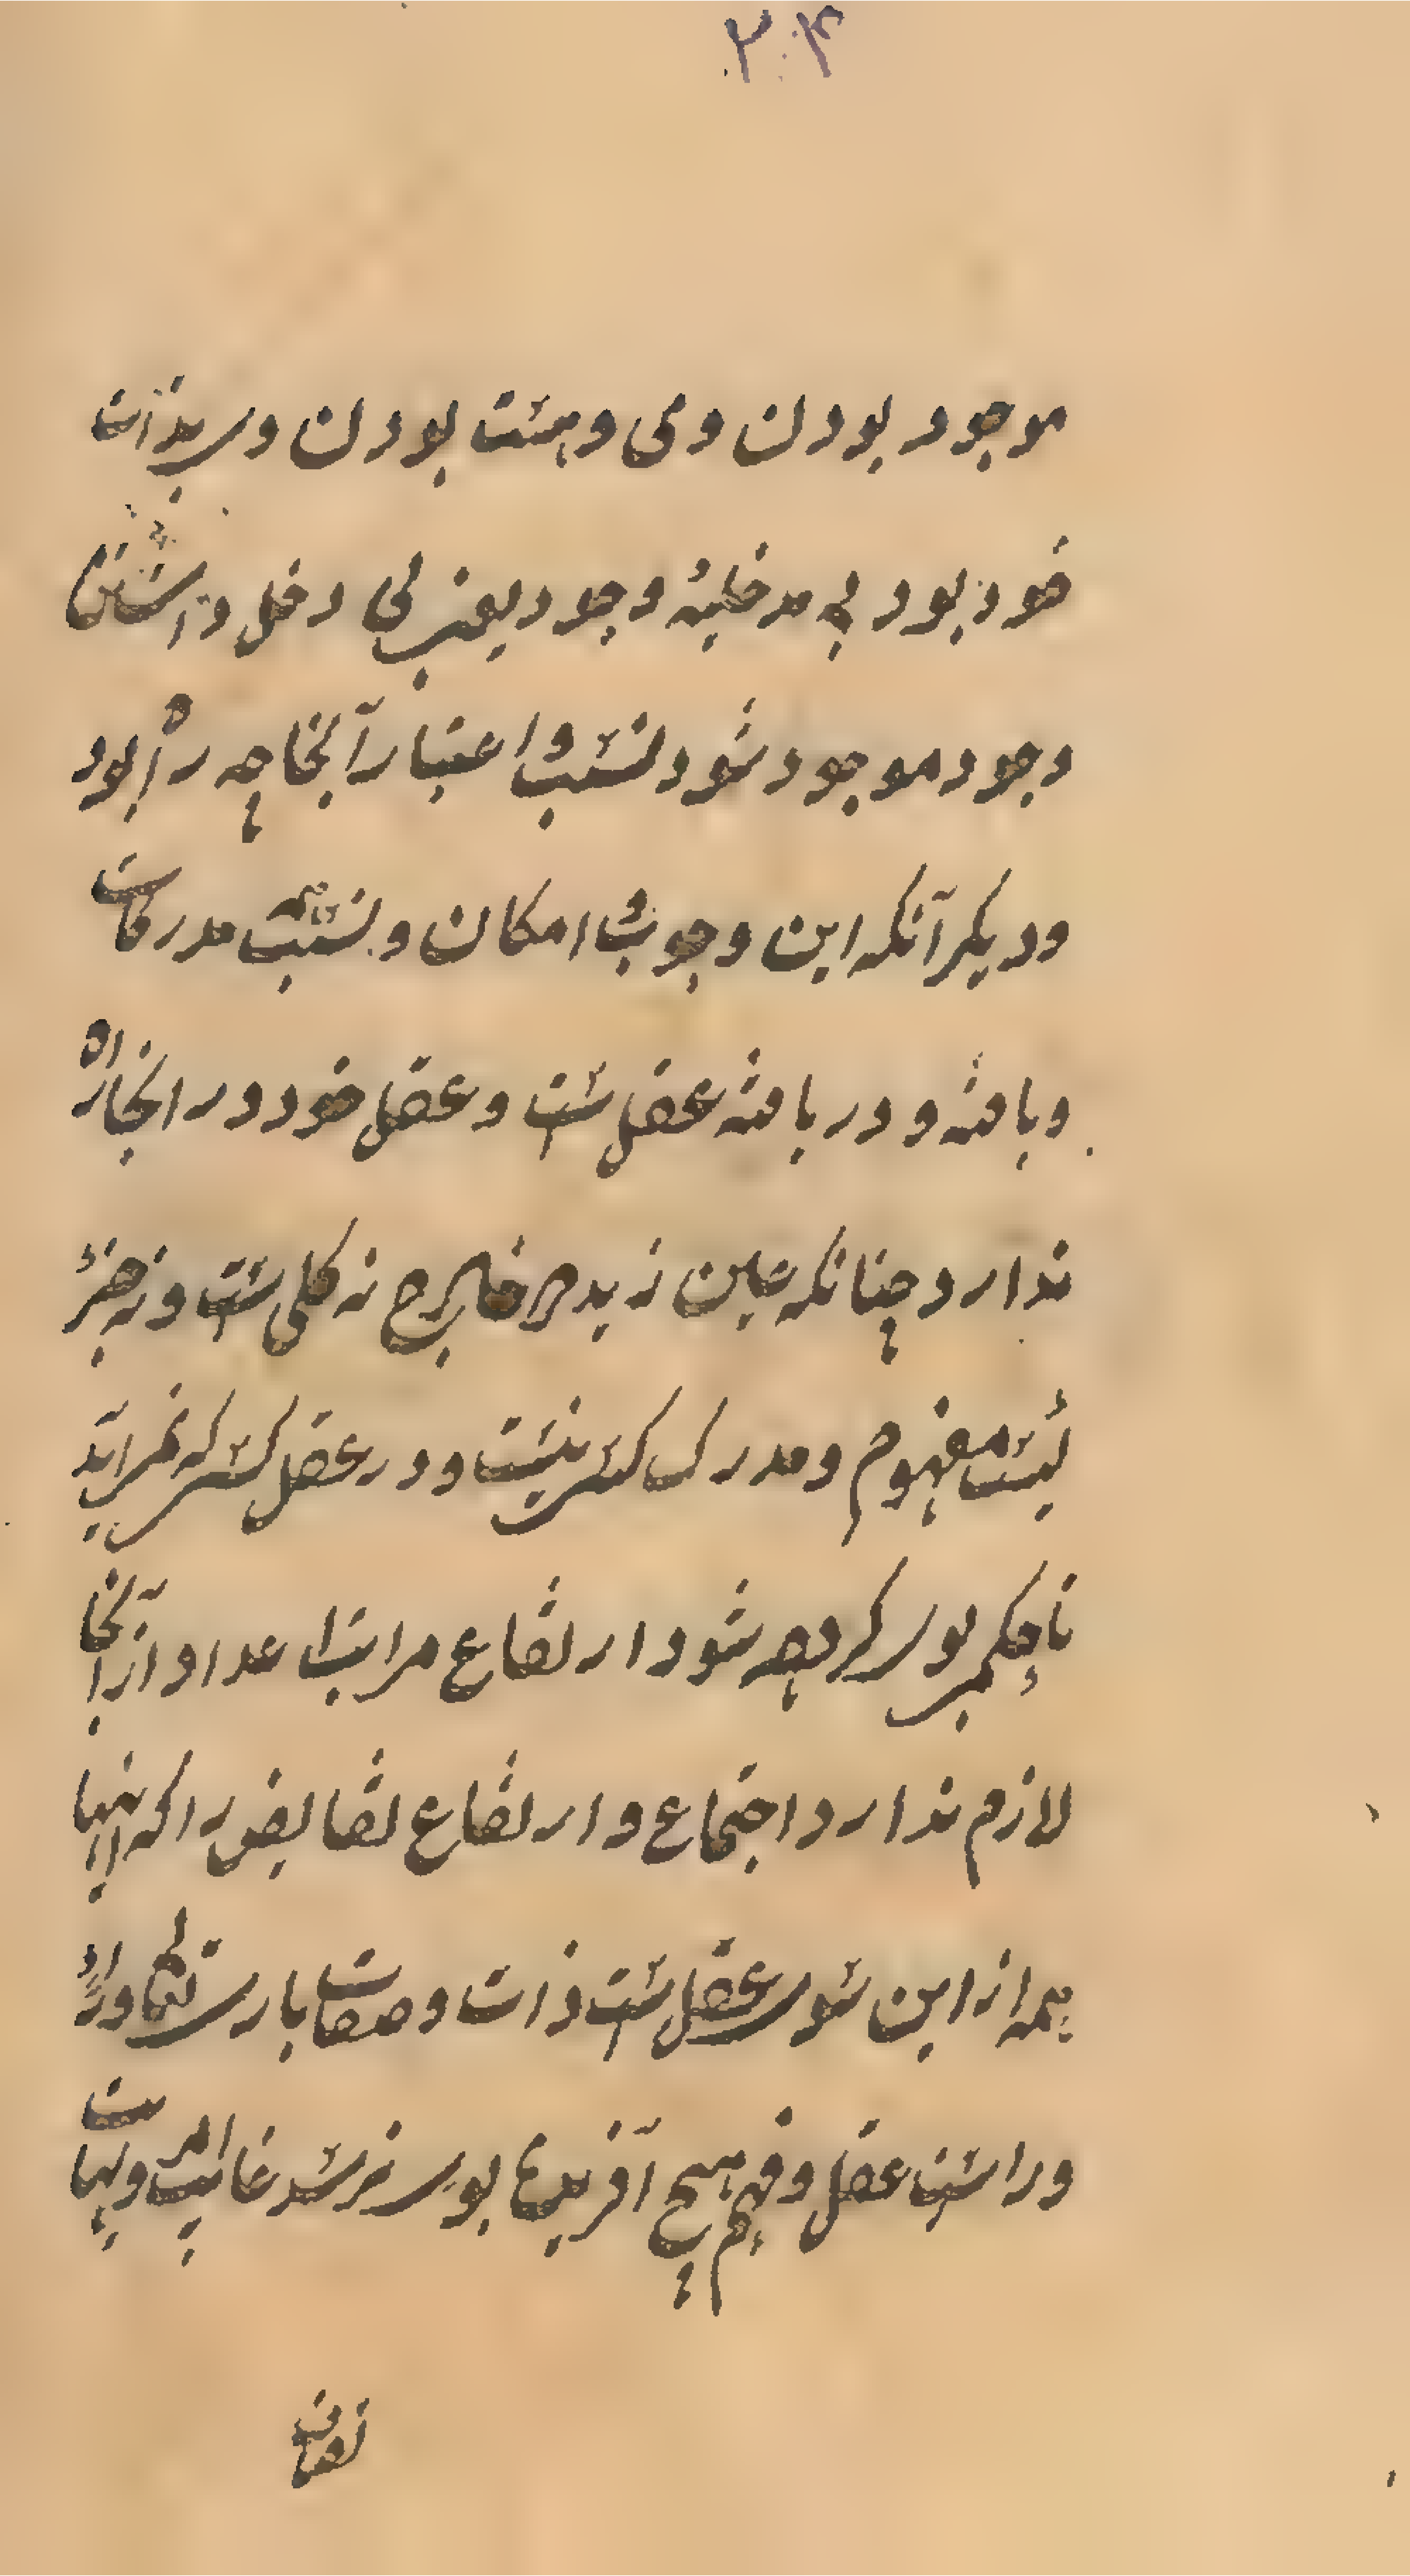 ۲۰۴
موجود بودن وی و هست بودن وی بذات
خود بود بی مدخلیة وجود یعنی بی دخل داشتن
وجود موجود شود نسبت و اعتبار آنجا چه راه بود
و دیگر آنکه این وجوب و امکان و نسبت همه مدرکات
و یافته و دریافته عقل است و عقل خود در انجا راه
ندارد چنانکه عین زید در خارج نه کلی است و نه جزئی
مفهوم و مدرک کسی نیست و در عقل کسی که نمی آید
تا حکم بوی کرده شود ارتفاع مراتب اعداد از آنجا
لازم ندارد اجتماع و ارتفاع نقایض را که اینها
همه از این سوی عقل است ذات و صفات باری تعالی
ورا است عقل و فهم هیچ آفریده بوی نرسد غایت و نهایت